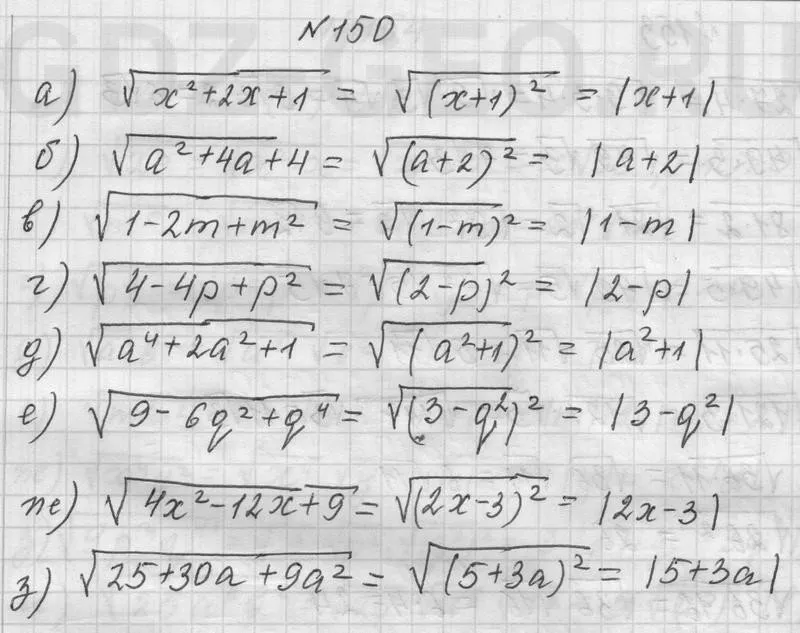 №150
а) √x²+2x+1 = √(x+1)² = |x+1|
б) √a²+4a+4 = √(a+2)² = |a+2|
в) √1-2m+m² = √(1-m)² = |1-m|
г) √4-4p+p² = √(2-p)² = |2-p|
д) √a⁴+2a²+1 = √(a²+1)² = |a²+1|
е) √9-6q²+q⁴ = √(3-q²)² = |3-q²|
ж) √4x²-12x+9 = √(2x-3)² = |2x-3|
з) √25+30a+9a² = √(5+3a)² = |5+3a|